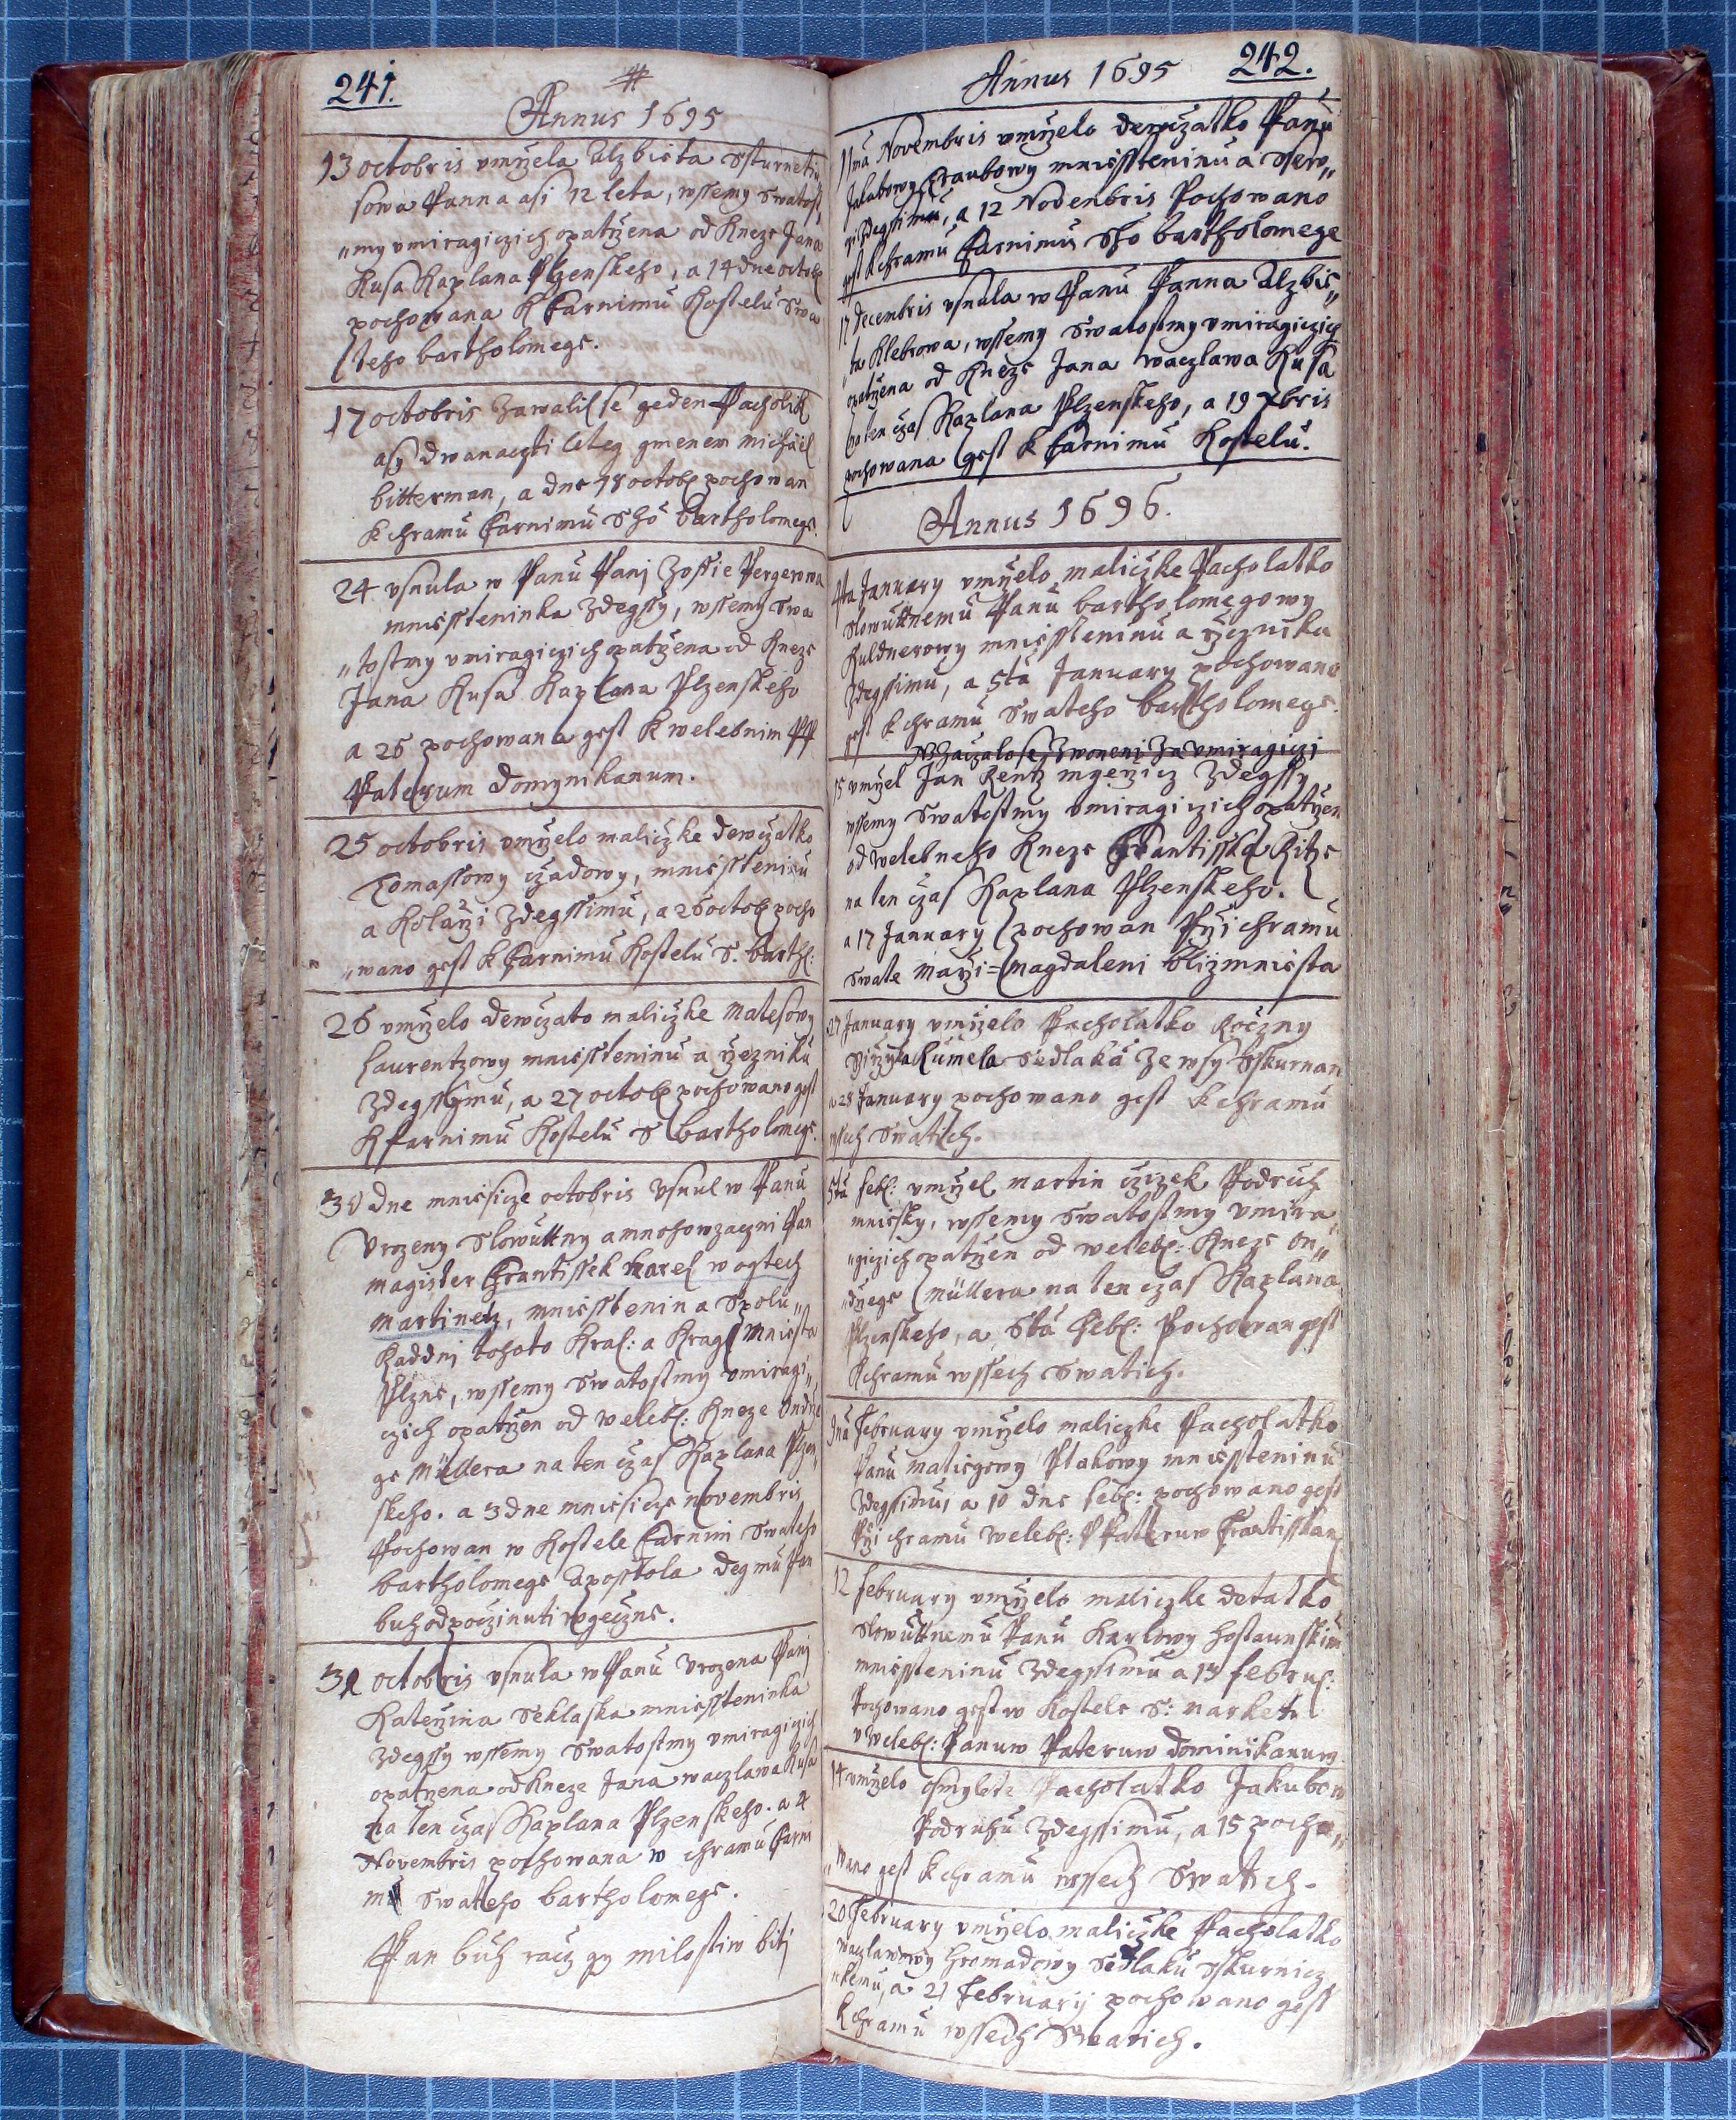 241.
Annus 1695
13 octobris vmržela Alzbieta
sowa Panna asi 12 leta, wssemy Swatost
"my vmiragiczich opatržena od Kneze Jana
Kusa Kaplana Plzenskeho, a 14 dne octob
pochowana k Farnimu Kostelu Swa
teho bartholomege.
17 octobris Zawalil se geden Pacholik
asy dwanaczti leteg gmenem michael
bitterman, a dne 18 octob pochowan
k chramu Farnimu Sho bartholomege
24 vsnula w Panu Panj Zossie Pergerowa
mniessteninka Zdegssy, wssemy Swa
"tostmy vmiragiczich opatržena od Kneze
Jana Kusa Kaplana Plzenskeho
a 26 pochowana gest k welebnim PP
Paterum domynikanum.
25 octobris vmrželo maliczke dewczatko
Tomassowy czadowy, mniessteninu
a Kolarži Zdegssimu, a 26 octob pocho
"wano gest k Farnimu Kostelu S. barth:
26 vmrželo dewczato maliczke matesowy
Laurentzowy mniessteninu a ržezniku
Zdegssymu, a 27 octob pochowano gest
k farnimu Kostelu S bartholomege.
dne mniesicze octobris vsnul w Panu
Vrozeny Slowuttny a mnohowzaczni Pan
magister Frantissek karel wogtech
martinetz, mniesstenin a Spolu"
Raddnj tohoto Kral: a Krag mniesta
Plzne, wssemy Swatostmy vmiragi"
czich opatržen od weleb: Kneze Ondrže
ge Müllera na ten czas Kaplana Plzen
skeho. a 3 dne mniesicze novembris
Pochowan w Kostele Farnim Swateho
bartholomege apostola deg mu Pan
buh odpoczinuti wgeczne.
octobris vsnula w Panu Vrozena Panj
Kateržina Seklaska mniessteninka
Zdegssy wssemy Swatostmy vmiragiczich
opatržena od Kneze Jana waczlawa Kusa
na ten czas Kaplana Plzenskeho. a 4
Novembris pochowana w chramu Farni
Swateho bartholomege.
Pan buh racz gy milostiw biti
Annus 1695 242.
11ma Novembris vmrželo dewczatko Panu
Jakubowy Straubowy mniessteninu a
Zdegssimu, a 12 Novenbris Pochowano
gest k chramu Farnimu Sho bartholomege
17 decembris vsnula w Panu Panna Alzbie"
"ta Klebrowa, wssemy Swatostmy vmiragiczich
opatržena od Kneze Jana waczlawa Kusa
na ten czas Kaplana Plzenskeho, a 19 Xbris
pochowana gest k Farnimu Kostelu.
Annus 1696.
4ta January vmrželo maliczke Pacholatko
Slowuttnemu Panu bartholomegowy
Huldnerowy mniessteninu a ržezniku
Zdegssimu, a 5ta January pochowano
gest k chramu Swateho bartholomege.
NB Zaczalo se Zwoneni Za vmiragiczi
15 vmržel Jan Rentz Zdegssy
wssemy Swatostmy vmiragiczich opatržen
od welebneho Kneze Frantisska Ritze
na ten czas Kaplana Plzenskeho.
a 17 January pochowan Prži chramu
Swate Marži=magdaleni bliz mniesta
27 January vmrželo Pacholatko Roczny
Rumela Sedlaka Ze wsy Sskurnan
a 28 January pochowano gest k chramu
wssech Swatich.
5ta feb: vmržel martin czizek Podruh
mniesky, wssemy Swatostmy vmira
"giczich opatržen od weleb: Kneze On"
"držege müllera na ten czas Kaplana
Plzenskeho, a 6ta Feb: Pochowan gest
k chramu wssech Swatich.
9na February vmrželo maliczke Pacholatko
Panu matiegowy Ptakowy mniessteninu
Zdegssimu, a 10 dne feb: pochowano gest
Prži chramu weleb: P Pateruw Frantisskan
12 february vmrželo maliczke detatko
Slowuttnemu Panu Karlowy hostaunskim
mniessteninu Zdegssimu a 13 februa:
Pochowano gest w Kostele S: markete
v weleb: Panuw Pateruw dominikanuw
14 vmrželo osmylete Pacholatko Jakubow
Podruhu Zdegssimu, a 15 pocho"
"wano gest k chramu wssech Swatich.
20 february vmrželo maliczke Pacholatko
waczlawowy Hromadowy Sedlaku Skurnicz
nkemu, a 21 Februarij pochowano gest
k chramu wssech Swatich.